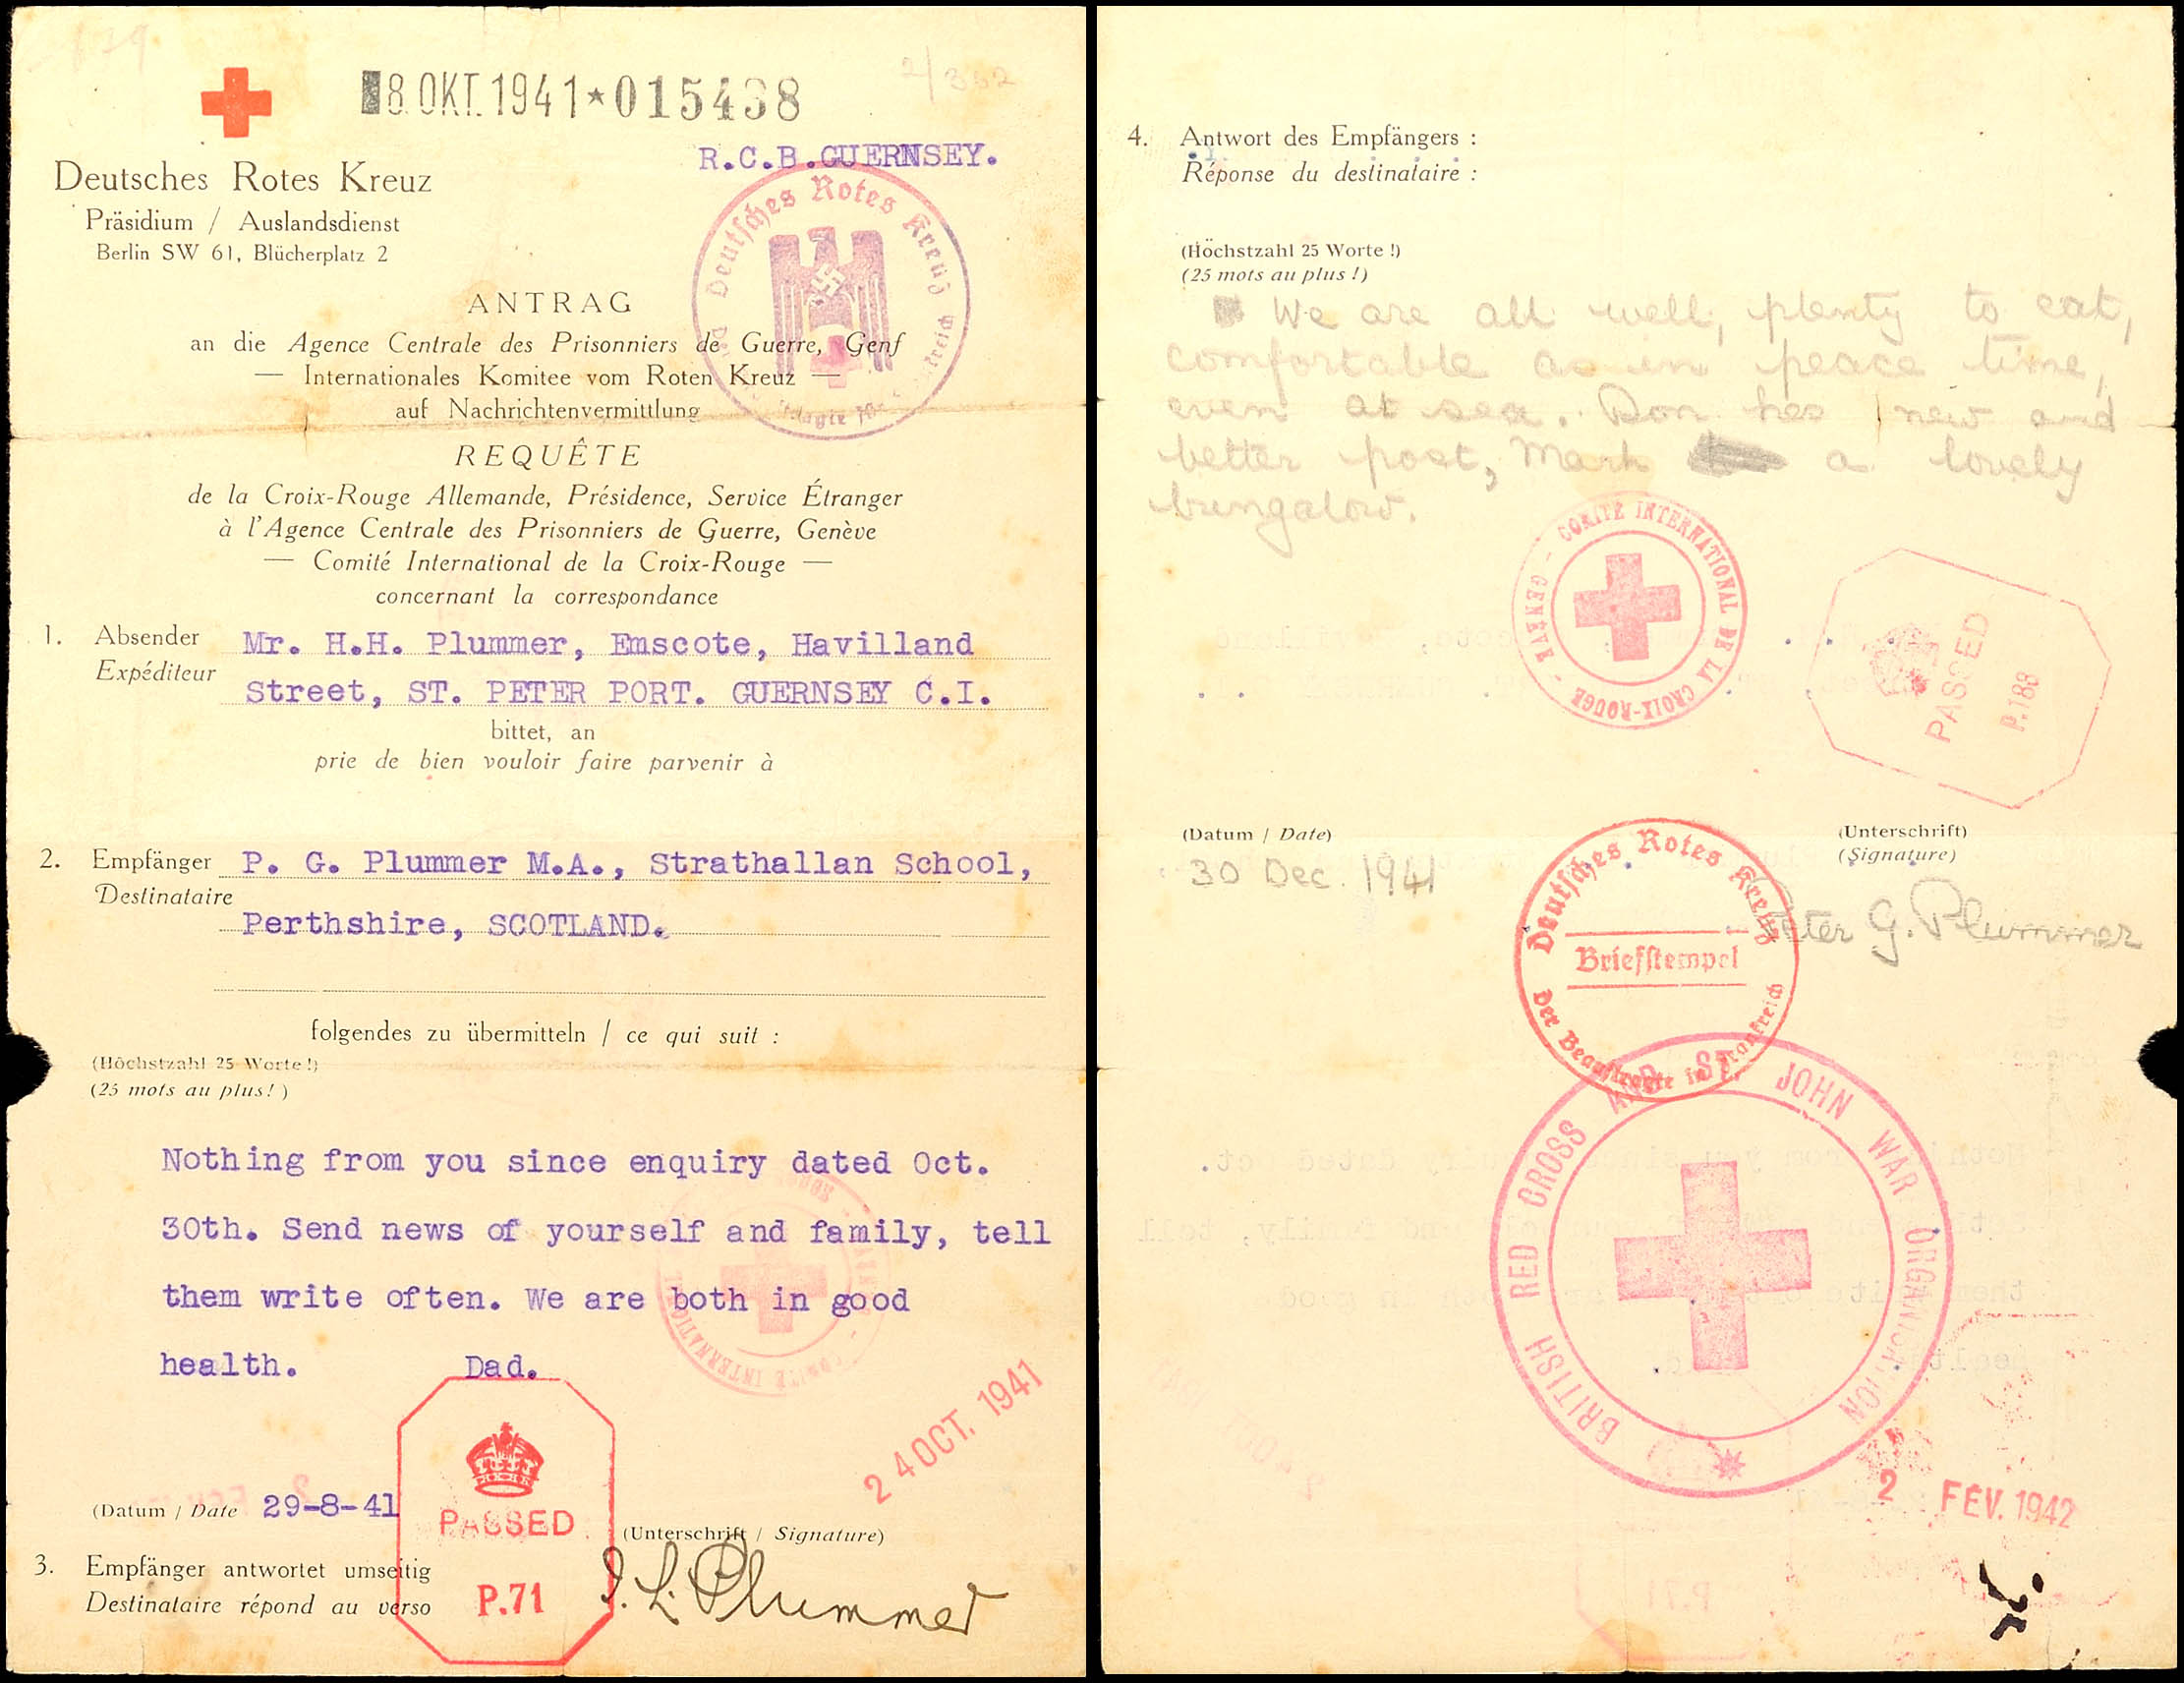 8.OKT.1941*015438
R.C.B.GUERNSEY.
Deutsches Rotes Kreuz
Präsidium / Auslandsdienst
Berlin SW 61, Blücherplatz 2
Deutsches Rotes Kreuz
ANTRAG
an die Agence Centrale des Prisonniers de Guerre, Genf
— Internationales Komitee vom Roten Kreuz —
auf Nachrichtenvermittlung
REQUÊTE
de la Croix-Rouge Allemande, Présidence, Service Étranger
à l'Agence Centrale des Prisonniers de Guerre, Genève
— Comité International de la Croix-Rouge —
concernant la correspondance
1. Absender Mr. H.H. Plummer, Emscote, Havilland
Expéditeur
Street, ST. PETER PORT. GUERNSEY C.I.
bittet, an
prie de bien vouloir faire parvenir à
2. Empfänger P. G. Plummer M.A., Strathallan School,
Destinataire
Perthshire, SCOTLAND.
folgendes zu übermitteln / ce qui suit :
(Höchstzahl 25 Worte!)
(25 mots au plus!)
Nothing from you since enquiry dated Oct.
30th. Send news of yourself and family, tell
them write often. We are both in good
health. Dad.
24 OCT. 1941
(Datum / Date 29-8-41
PASSED
P.71
(Unterschrift / Signature)
Plummer
3. Empfänger antwortet umseitig
Destinataire répond au verso
4. Antwort des Empfängers :
Réponse du destinataire :
(Höchstzahl 25 Worte !)
(25 mots au plus !)
We are all well, plenty to eat,
comfortable as in peace time,
even at sea. Don has new and
better post, Mark a lovely
bungalow.
COMITÉ INTERNATIONAL DE LA CROIX-ROUGE - GENÈVE -
PASSED
P.188
(Datum / Date)
(Unterschrift)
(Signature)
30 Dec. 1941
Peter G. Plummer
Deutsches Rotes Kreuz
Briefstempel
Der Beauftragte in Frankreich
BRITISH RED CROSS AND ST. JOHN WAR ORGANISATION
2 FEV. 1942